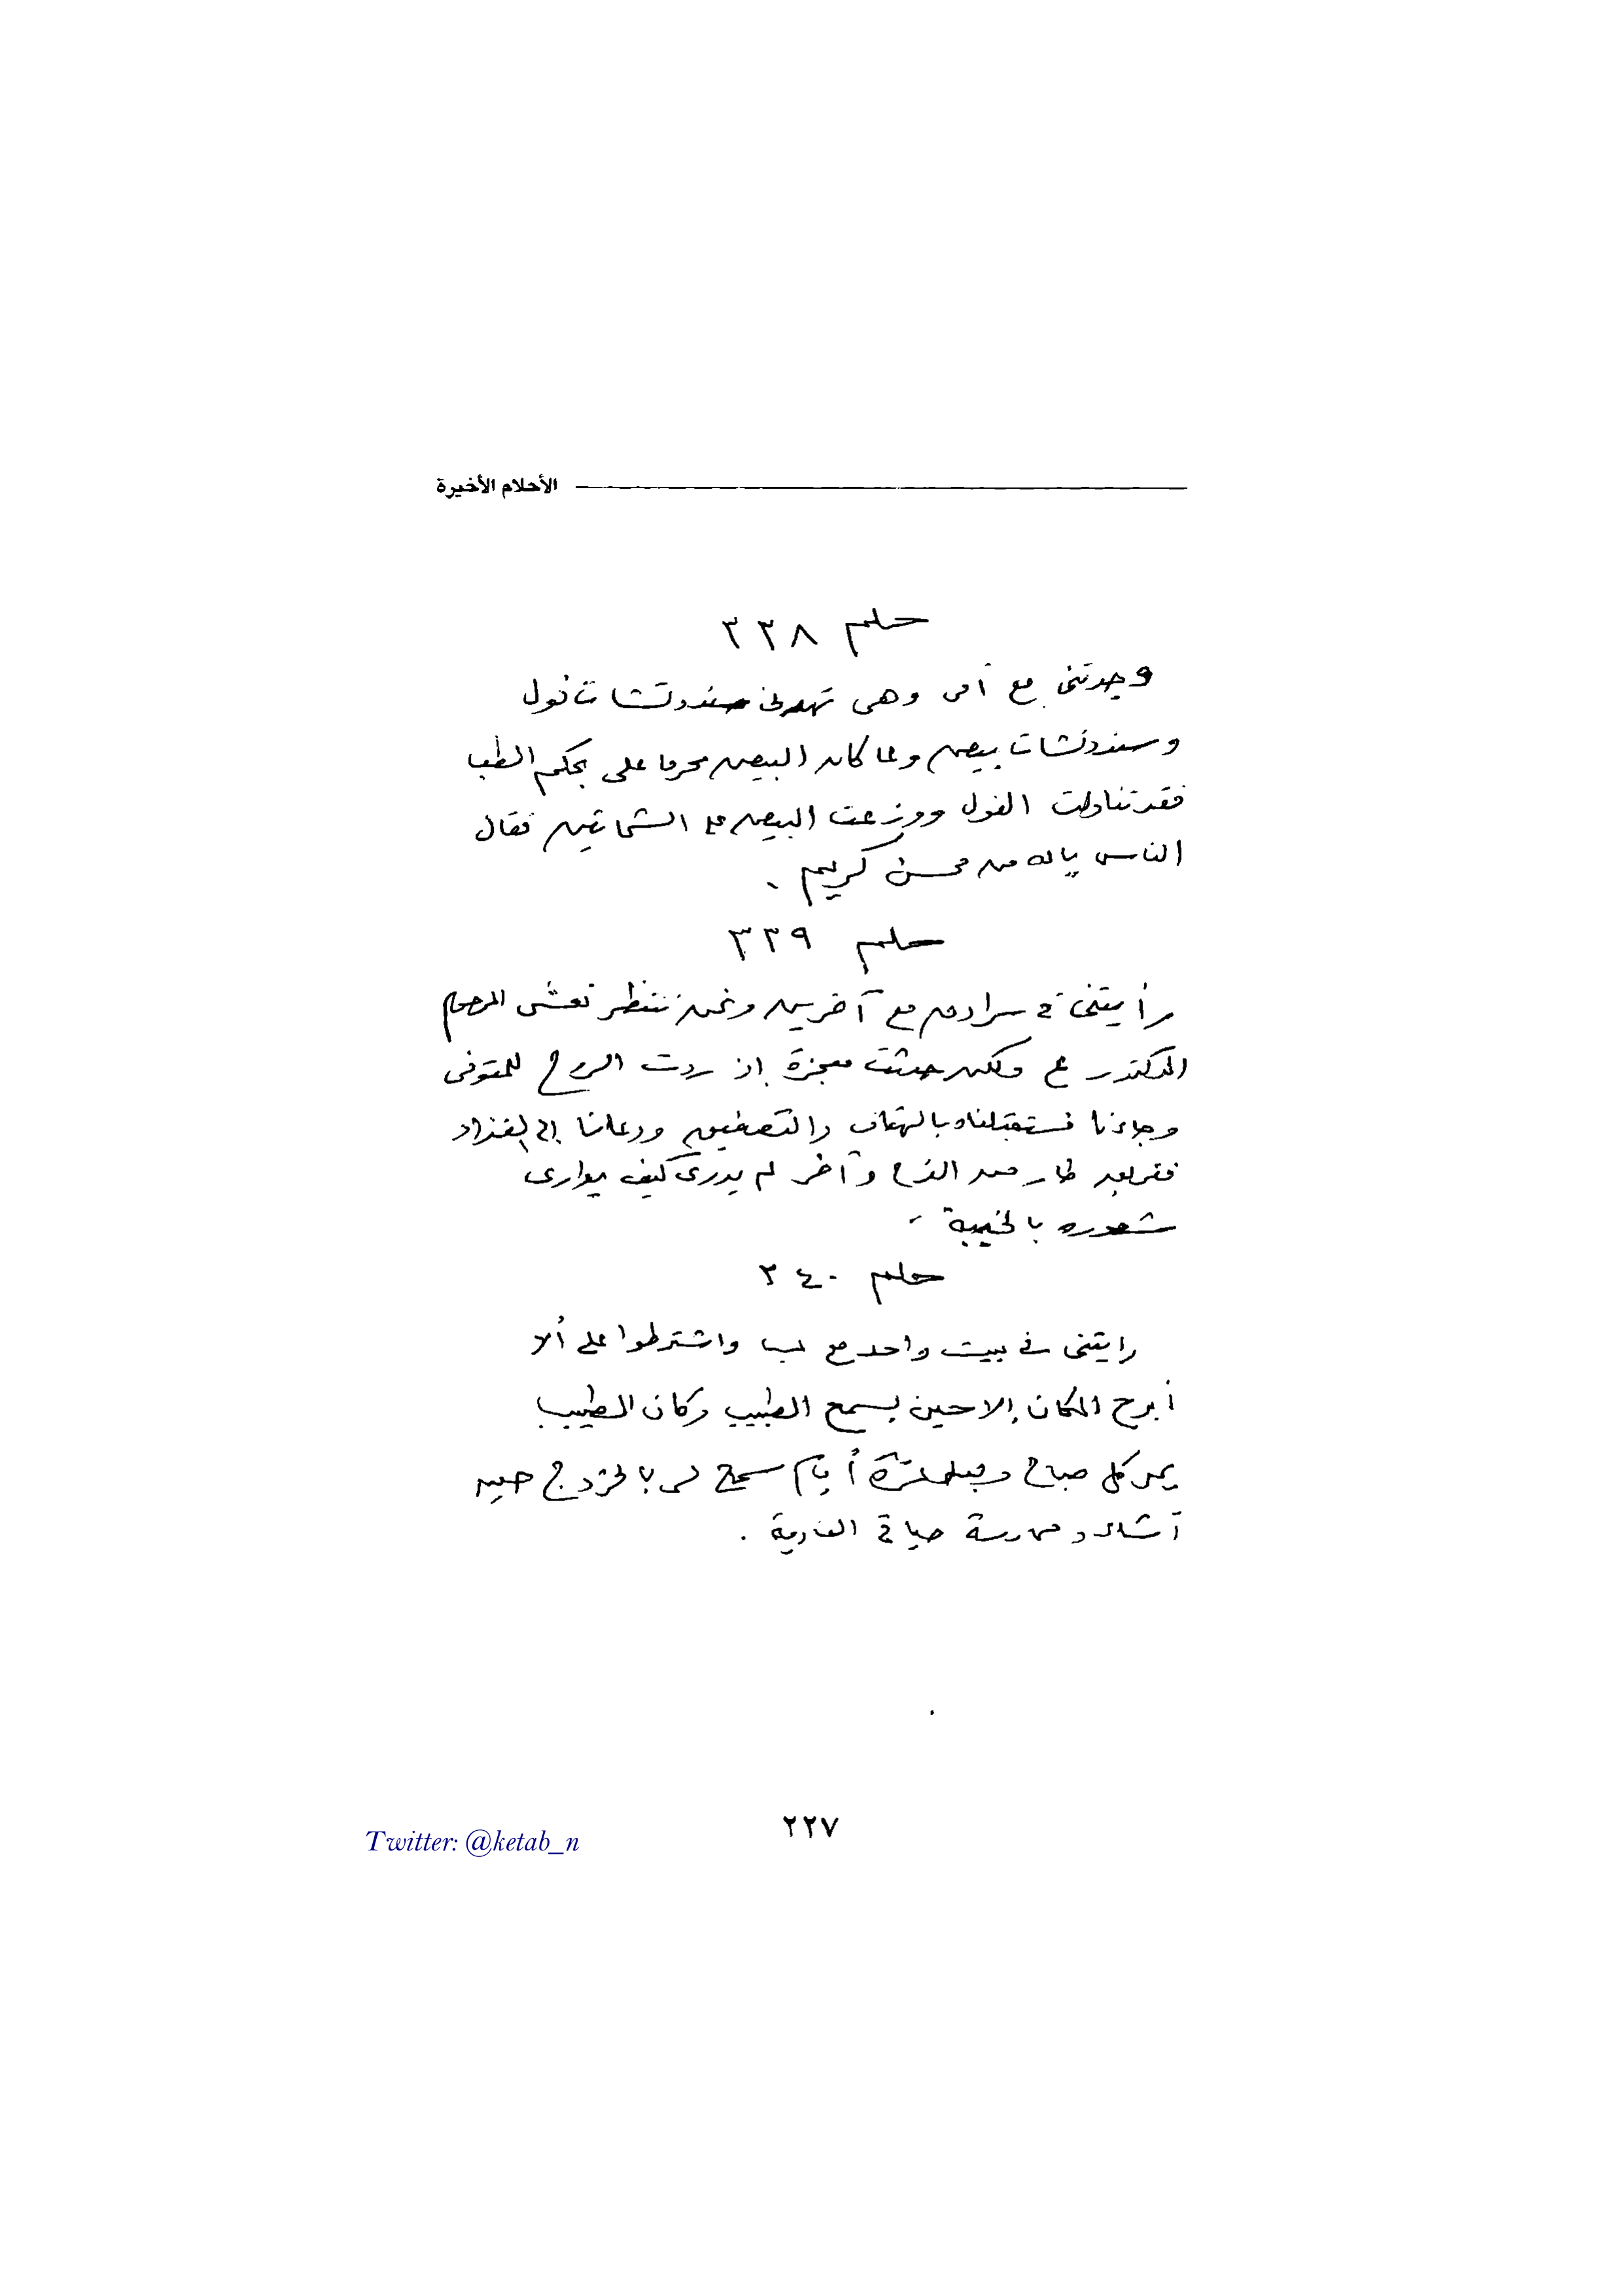 الأحلام الأخيرة
حلم ٣٣٨
وجدتنى مع أمى وهى تهدنى سندوتشات فول
وسندوتشات بيض ولما كان البيض محرما على بحكم الطب
فقد تناولت الفول ووزعت البيض على الشحاتين فقال
الناس ياله من محسن كريم .
حلم ٣٣٩
رأيتنى فى سرادق مع آخرين ونحن ننتظر نعش المرحوم
الدكتور ع ولكن حدثت معجزة إذ ردت الروح للمتوفى
وجاءنا فستقبلناه بالهتاف والتصفيق ودعانا إلى الغذاء
طار من الفرح وآخر لم يدرى كيف يوارى
شعوره بالخيبة .
حلم ٣٤٠
رايتنى فى بيت واحد مع واشترطوا على ألا
أبرح المكان إلا حين يسمح الطبيب وكان الطبيب
يمر كل صباح وبعد عشرة أيام سمح لى بالخروج حين
آشاء وممارسة حياتى العادية .
٢٢٧
Twitter: @ketab_n